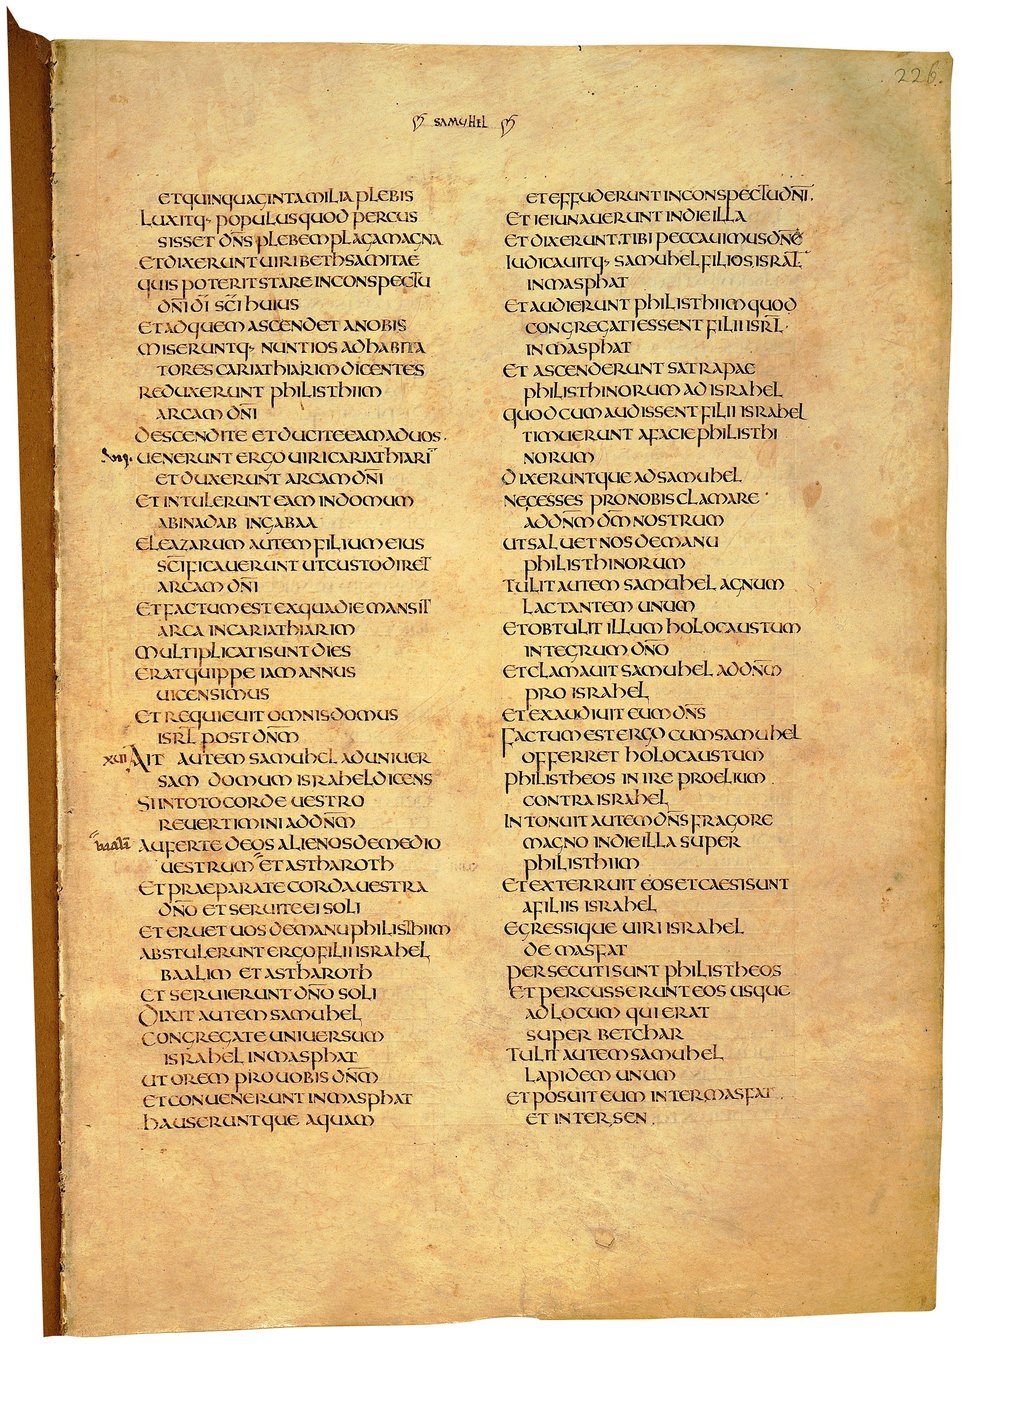 226.
SAMUHEL
ET QUINQUAGINTA MILIA PLEBIS
LUXITQ· POPULUS QUOD PERCUS
SISSET DN̅S PLEBEM PLAGA MAGNA
ET DIXERUNT UIRI BETHSAMITAE
QUIS POTERIT STARE IN CONSPECTU
DN̅I DI̅ SC̅I HUIUS
ET AD QUEM ASCENDET A NOBIS
MISERUNTQ· NUNTIOS AD HABITA
TORES CARIATHIARIM DICENTES
REDUXERUNT PHILISTHIIM
ARCAM DN̅I
DESCENDITE ET DUCITE EAM AD UOS.
UENERUNT ERGO UIRI CARIATHIARI̅
ET DUXERUNT ARCAM DN̅I
ET INTULERUNT EAM IN DOMUM
ABINADAB IN GABAA
ELEAZARUM AUTEM FILIUM EIUS
SC̅IFICAUERUNT UT CUSTODIRET
ARCAM DN̅I
ET FACTUM EST EX QUA DIE MANSIT
ARCA IN CARIATHIARIM
MULTIPLICATI SUNT DIES
ERAT QUIPPE IAM ANNUS
UICENSIMUS
ET REQUIEUIT OMNIS DOMUS
ISRL̅ POST DN̅M
XUII AIT AUTEM SAMUHEL AD UNIUER
SAM DOMUM ISRAHEL DICENS
SI IN TOTO CORDE UESTRO
REUERTIMINI AD DN̅M
baali̅ AUFERTE DEOS ALIENOS DE MEDIO
UESTRUM ET ASTHAROTH
ET PRAEPARATE CORDA UESTRA
DN̅O ET SERUITE EI SOLI
ET ERUET UOS DE MANU PHILISTHIIM
ABSTULERUNT ERGO FILII ISRAHEL
BAALIM ET ASTHAROTH
ET SERUIERUNT DN̅O SOLI
DIXIT AUTEM SAMUHEL
CONGREGATE UNIUERSUM
ISRAHEL IN MASPHAT
UT OREM PRO UOBIS DN̅M
ET CONUENERUNT IN MASPHAT
HAUSERUNTQUE AQUAM
ET EFFUDERUNT IN CONSPECTU DN̅I.
ET IEIUNAUERUNT IN DIE ILLA
ET DIXERUNT. TIBI PECCAUIMUS DN̅E
IUDICAUITQ· SAMUHEL FILIOS ISRAL̅
IN MASPHAT
ET AUDIERUNT PHILISTHIIM QUOD
CONGREGATI ESSENT FILII ISRL̅·
IN MASPHAT
ET ASCENDERUNT SATRAPAE
PHILISTHINORUM AD ISRAHEL
QUOD CUM AUDISSENT FILII ISRAHEL
TIMUERUNT A FACIE PHILISTHI
NORUM
DIXERUNTQUE AD SAMUHEL
NE CESSES PRO NOBIS CLAMARE
AD DN̅M DM̅ NOSTRUM
UT SALUET NOS DE MANU
PHILISTHINORUM
TULIT AUTEM SAMUHEL AGNUM
LACTANTEM UNUM
ET OBTULIT ILLUM HOLOCAUSTUM
INTEGRUM DN̅O
ET CLAMAUIT SAMUHEL AD DN̅M
PRO ISRAHEL
ET EXAUDIUIT EUM DN̅S
FACTUM EST ERGO CUM SAMUHEL
OFFERRET HOLOCAUSTUM
PHILISTHEOS INIRE PROELIUM
CONTRA ISRAHEL
INTONUIT AUTEM DN̅S FRAGORE
MAGNO IN DIE ILLA SUPER
PHILISTHIIM
ET EXTERRUIT EOS ET CAESI SUNT
A FILIIS ISRAHEL
EGRESSIQUE UIRI ISRAHEL
DE MASFAT
PERSECUTI SUNT PHILISTHEOS
ET PERCUSSERUNT EOS USQUE
AD LOCUM QUI ERAT
SUPER BETCHAR
TULIT AUTEM SAMUHEL
LAPIDEM UNUM
ET POSUIT EUM INTER MASFAT.
ET INTER SEN.